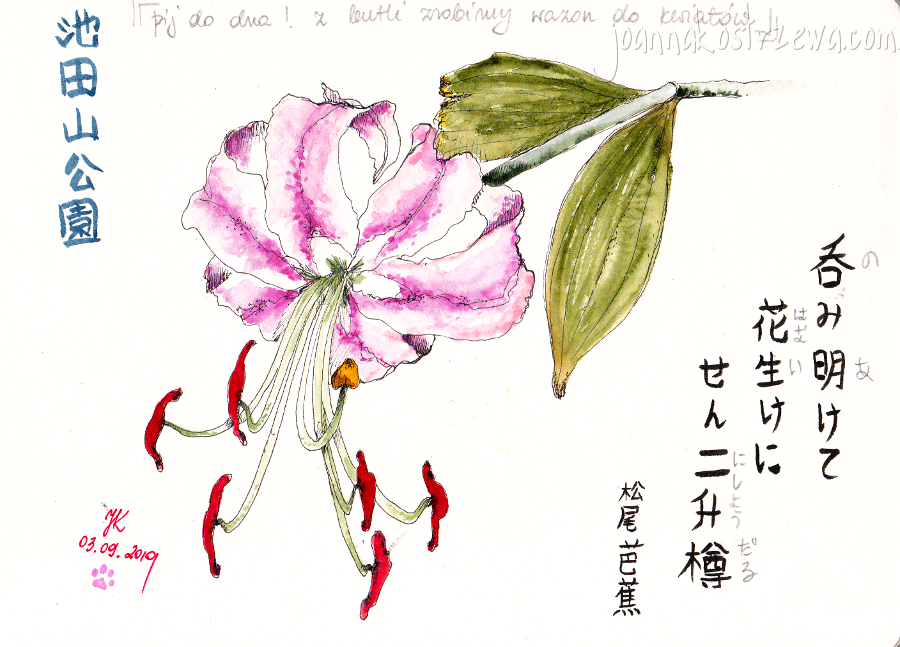 pij do dna! z butli zrobimy wazon do kwiatów
joannakosztlewa.com
池田山公園
呑み明けて
の
あ
花生けに
はな
い
せん二升樽
にしょう
だる
松尾芭蕉
JK
03.09.2019